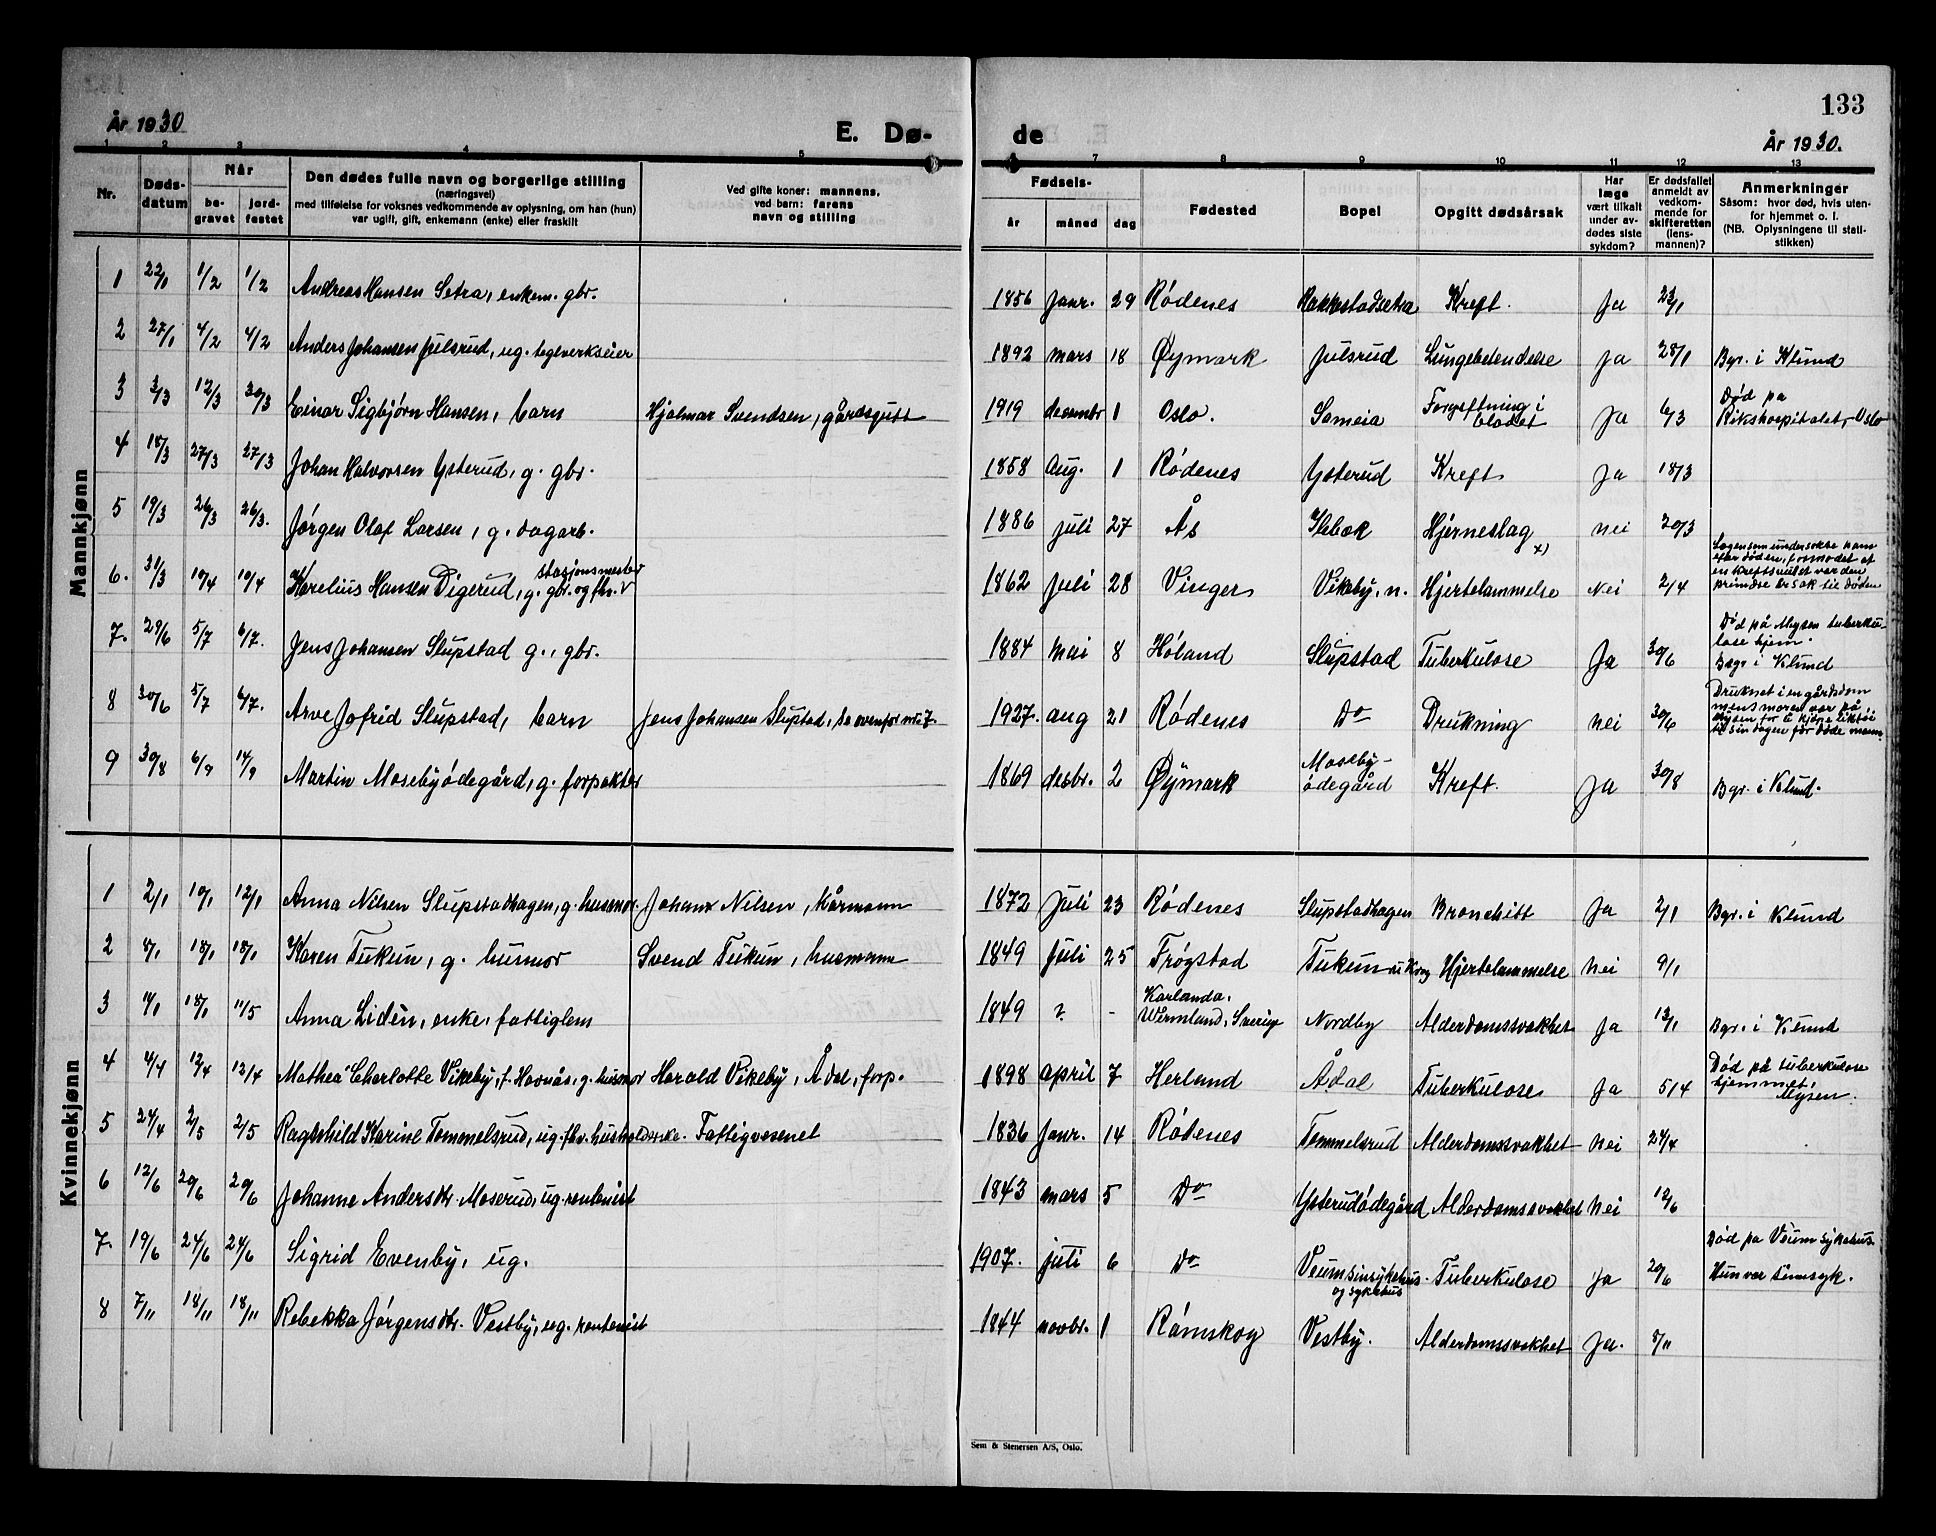 133
År 1930
E. Dø-
de
År 1930.
1 2 3 4 5 7 8 9 10 11 12 13
Nr. Døds-datum Når be-gravet jord-festet Den dødes fulle navn og borgerlige stilling (næringsvei) med tilføielse for voksnes vedkommende av oplysning, om han (hun) var ugift, gift, enkemann (enke) eller fraskilt Ved gifte koner: mannens, ved barn: farens navn og stilling
Fødsels- år måned dag Fødested Bopel Opgitt dødsårsak Har læge vært tilkalt under av-dødes siste sykdom? Er dødsfallet anmeldt av vedkom-mende for skifteretten (lens-mannen)? Anmerkninger Såsom: hvor død, hvis uten-for hjemmet o. l. (NB. Oplysningene til stati-stikken)
Mannkjønn
1 22/1 1/2 1/2 Andreas Hansen Setra, enkem. gbr. 1856 Janr. 29 Rødenes Rakkestadsetra Kreft. Ja 23/1
2 27/1 4/2 4/2 Anders Johansen Julsrud, ug. teglverkseier 1892 mars 18 Øymark Julsrud Lungebetendelse Ja 28/1 Bgr. i Klund
3 3/3 12/3 30/3 Einar Sigbjørn Hansen, barn Hjalmar Svendsen, gårdsgutt 1919 desembr 1 Oslo. Sameia Forgiftning i blodet Ja 6/3 Død på Rikshospitalet, Oslo
4 18/3 27/3 27/3 Johan Halvorsen Ysterud, g. gbr. 1858 Aug. 1 Rødenes Ysterud Kreft Ja 18/3
5 19/3 26/3 26/3. Jørgen Olaf Larsen, g. dagarb. 1886 juli 27 Ås Ilebek Hjerneslag x) nei 20/3
6. 31/3 10/4 10/4 Karelius Hansen Digerud, g. gbr. og fhv. stasjonsmester 1862 Juli 28 Vinger Vikeby, n. Hjertelammelse Nei 2/4 Legen som undersøkte ham efter døden, formodet at en kreftsvulst var den primære årsak til døden
7. 29/6 5/7 6/7. Jens Johansen Slupstad g., gbr. 1884 mai 8 Høland Slupstad Tuberkulose Ja 30/6 Død på Mysen tuberku-lose hjem. Begr. i Klund
8 30/6 5/7 6/7. Arve Jofrid Slupstad, barn Jens Johansen Slupstad, se ovenfor nr. 7. 1927. aug 21 Rødenes Do Drukning nei 30/6 Druknet i en gårdsdam mens moren var på Mysen for å kjøpe liktøi til sin dagen før døde mann.
9 30/8 6/9 14/9 Martin Mosebyødegård, g. forpakter 1869 desbr. 2 Øymark Moseby-ødegård Kreft. Ja 30/8 Bgr. i Klund.
Kvinnekjønn
1 2/1 10/1 12/1 Anna Nilsen Slupstadhagen, g. husmor. Johan Nilsen, kårmann 1872 Juli 23 Rødenes Slupstadhagen Bronchitt Ja 2/1 Bgr. i Klund
2 8/1 18/1 18/1 Karen Tukun, g. husmor Svend Tukun, husmann 1849 Juli 25 Frøgstad Tukun Hjertelammelse Nei 9/1
3 11/1 18/1 11/5 Anna Lidèn, enke, fattiglem 1849 ? - Karlanda, Wermland, Sverige Nordby Alderdomssvakhet Ja 13/1 Bgr. i Klund
4 4/4 12/4 12/4 Mathea Charlotte Vikeby, f. Havnås, g. husmor Harald Vikeby, Ådal, forp. 1898 april 7 Herland Ådal Tuberkulose Ja 5/4 Død på tuberkulose hjemmet, Mysen.
5 24/4 2/5 2/5 Ragnhild Karine Tømmelsrud, ug. fhv. husholderske. Fattigvesenet 1836 Janr. 14 Rødenes Tømmelsrud Alderdomssvakhet Nei 24/4
6 12/6 20/6 20/6 Johanne Andersdtr. Moserud, ug. rentenist 1843 mars 5 Do Ysterudødegård Alderdomssvakhet Nei 12/6
7. 19/6 24/6 24/6 Sigrid Evenby, ug. 1907. juli 6 Do Veum sinsykehus. og sykehus Tuberkulose Ja 20/6 Død på Veum sykehus. Hun var sinnsyk.
8 7/11 18/11 18/11 Rebekka Jørgensdtr. Vestby, ug. rentenist 1844 novbr. 1 Rømskog Vestby. Alderdomssvakhet Ja. 8/11
Sem & Stenersen A/S, Oslo.